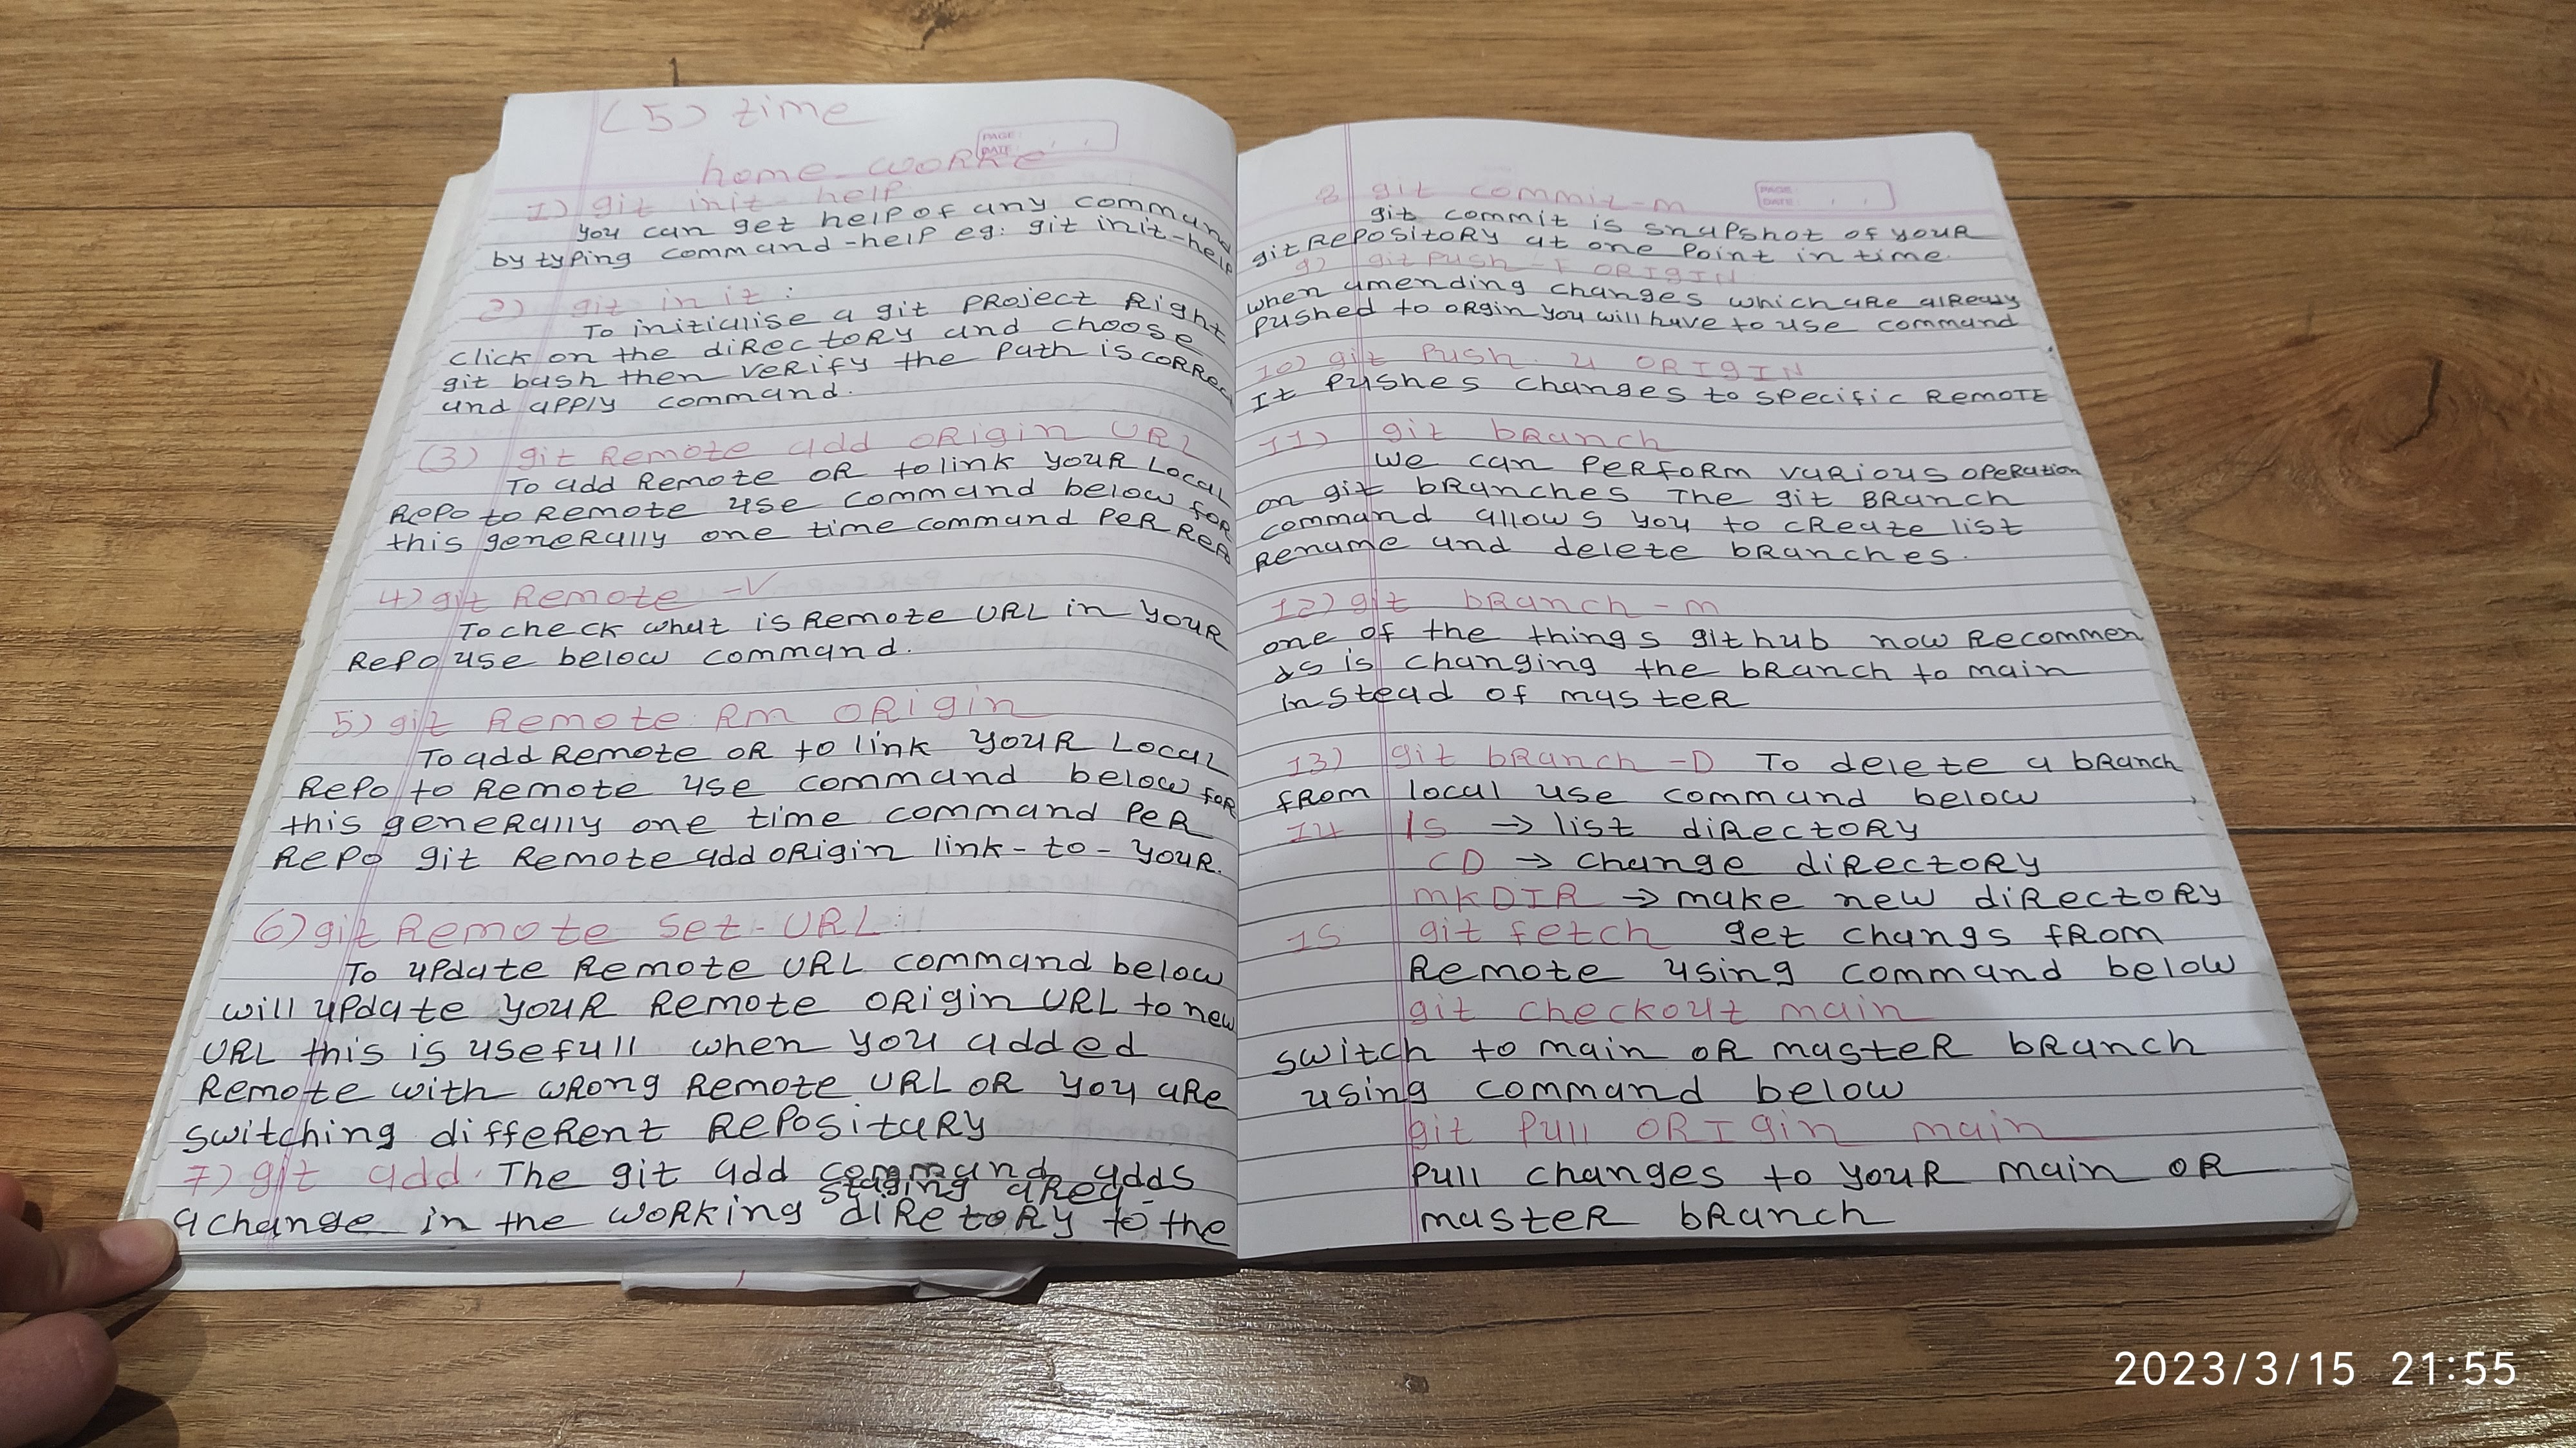 (5) time
PAGE:
DATE:
home-worke
1) git init-help
you can get help of any command
by typing command-help eg: git init-help
2) git init:
To initialise a git project Right
click on the directory and choose
git bash then verify the path is correc
and apply command.
(3) git Remote add origin URL
To add Remote OR to link your Local
Repo to Remote use command below for
this generally one time command per Rep
4) git Remote -V
To check what is Remote URL in your
Repo use below command.
5) git Remote Rm origin
To add Remote OR to link your Local
Repo to Remote use command below for
this generally one time command per
Repo git Remote add origin link-to-your.
6) git Remote set-URL:
To update Remote URL command below
will update your Remote origin URL to new
URL this is usefull when you added
Remote with wrong Remote URL OR you are
switching different Reposita​ry
7) git add. The git add command adds
staging area-
a change in the working diretory to the
PAGE:
DATE:
8 git commit-m
git commit is snapshot of your
git Repository at one point in time.
9) git push -f ORIGIN
when amending changes which are already
pushed to orgin you will have to use command
10) git push. u ORIGIN
It pushes changes to specific REMOTE
11) git branch
we can perform various operation
on git branches The git Branch
command allows you to create list
rename and delete branches.
12) git branch-m
one of the things github now Recommen
ds is changing the branch to main
instead of master
13) git branch -D To delete a branch
from local use command below
14 ls → list directory
CD → change directory
mkDIR → make new directory
15 git fetch get changs from
Remote using command below
git checkout main
switch to main OR master branch
using command below
git pull ORIgin main
pull changes to your main OR
master branch
2023/3/15 21:55